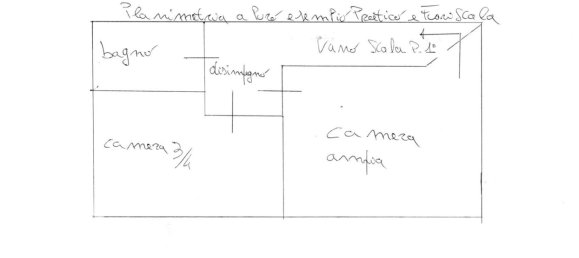 Planimetria a Puro esempio Pratico e Fuori Scala
bagno
disimpegno
Vano Scala P. 1°
camera 3/4
camera
ampia